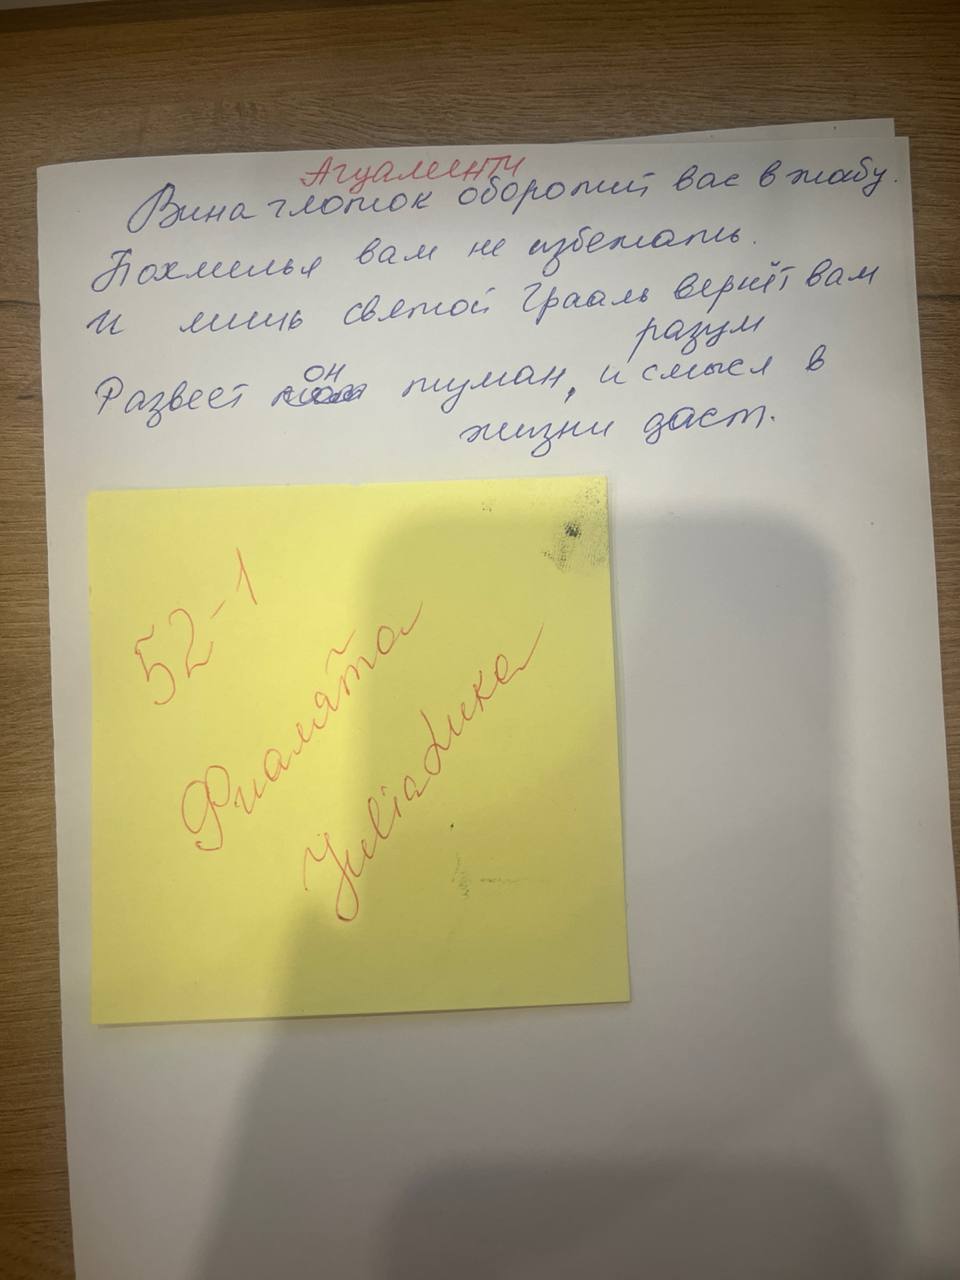 Агуаменти
Вина глоток оборотит вас в жабу.
Похмелья вам не избежать.
И лишь святой Грааль вернёт вам
разум
Развеет он туман, и смысл в
жизни даст.
52-1
Фиалята
JuliaЛика